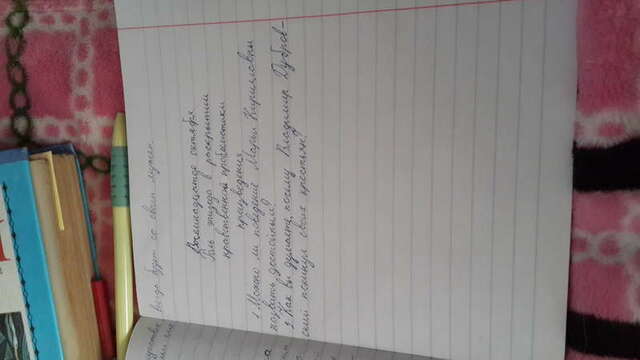 всегда будет со своим мужем.
Восемнадцатое октября
Роль эпизода в раскрытии
нравственной проблематики
произведения
1. Можно ли поведение Марии Кириловны
назвать достойным?
2. Как вы думаете, почему Владимир Дубров-
ский покинул своих крестьян?